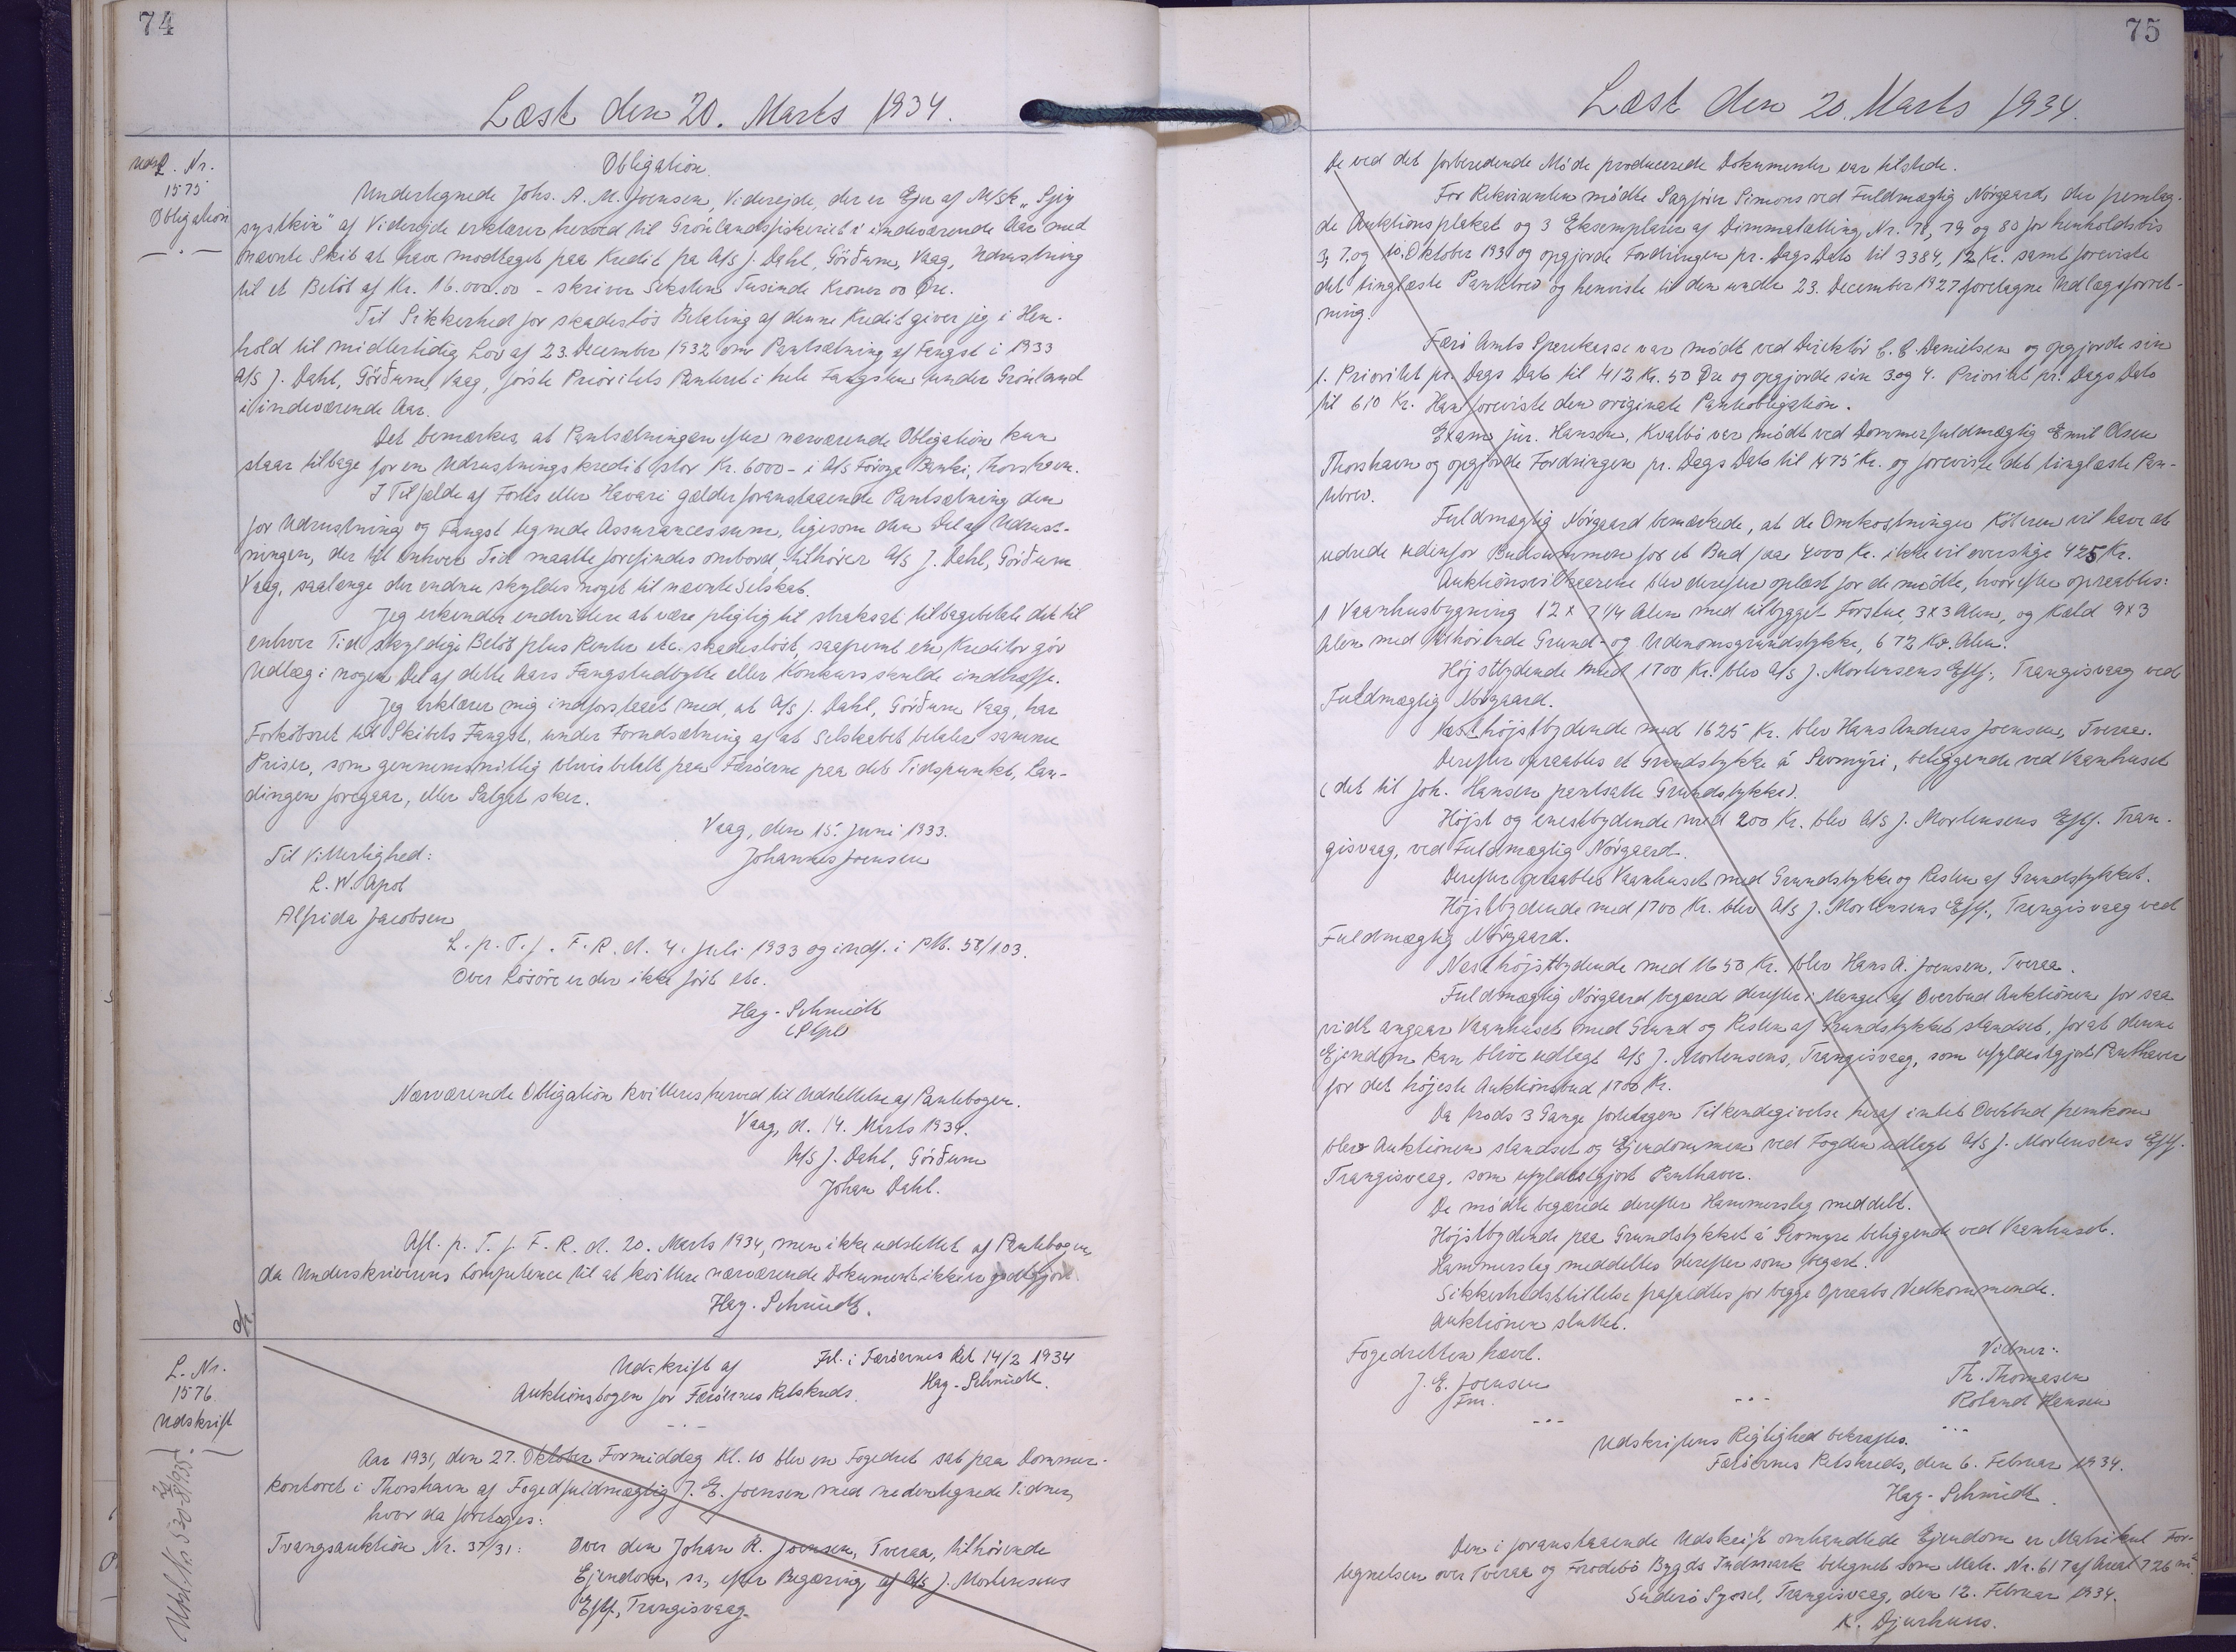 74
Læst den 20. Marts 1934.
L. Nr.
1575
Obligation
Obligation.
Undertegnede Johs. A. M. Joensen, Viderejde, der er Ejer af M/Sk „Spig
systkin" af Viderejde erklærer herved til Grönlandsfiskeriet i indeværende Aar med
nævnte Skib at have modtaget paa Kredit pa A/S J. Dahl, Görðum, Vaag, Udrustning
til et Belöb af Kr. 16.000.00 - skriver Seksten Tusinde Kroner 00 Øre.
Til Sikkerhed for skadeslös Betaling af denne Kredit giver jeg i Hen-
hold til midlertidig Lov af 23. December 1932 om Pantsætning af Fangst i 1933
A/S J. Dahl, Görðum, Vaag, förste Prioritets Panteret i hele Fangsten under Grönland
i indeværende Aar.
Det bemærkes, at Pantsætningen efter nærværende Obligation kun
staar tilbage for en Udrustningskredit stor Kr. 6000- i A/S Föroya Banki, Thorshavn.
I Tilfælde af Forlis eller Havari gælder foranstaaende Pantsætning den
for Udrustning og Fangst tegnede Assurancesum, ligesom den Del af Udrust-
ningen, der til enhver Tid maatte forefindes ombord, tilhörer A/S J. Dahl, Görðum
Vaag, saalænge der endnu skyldes noget til nævnte Selskab.
Jeg erkender endvidere at være pligtig til straks at tilbagebetale det til
enhver Tid skyldige Belöb plus Renter etc. skadeslöst, saafremt en Kreditor gör
Udlæg i nogen Del af dette Aars Fangstudbytte eller Konkurs skulde indtræffe.
Jeg erklærer mig indforstaaet med, at A/S J. Dahl, Görðum Vaag, har
Forköbsret til Skibets Fangst, under Forudsætning af at Selskabet betaler samme
Priser, som gennemsnitlig bliver betalt paa Færöerne paa det Tidspunkt, Lan-
dingen foregaar, eller Salget sker.
Vaag, den 15. Juni 1933.
Johannes Joensen
Til Vitterlighed:
L. W. Apol
Alfrida Jacobsen
L. p. T. f. F. R. d. 4. Juli 1933 og indf. i Ptb. 58/103.
Over Lösöre er der ikke fört etc.
Hay-Schmidt
Nærværende Obligation kvitteres herved til Udslettelse af Pantebogen.
Vaag, d. 14. Marts 1934.
A/S J. Dahl, Görðum
Johan Dahl.
Afl. p. T. f. F. R. d. 20. Marts 1934, men ikke udslettet af Pantebogen,
da Underskriverens Kompetence til at kvittere nærværende Dokument ikke er godtgjort.
Hay-Schmidt.
L. Nr.
1576.
Udskrift
Udskrift af
Auktionsbogen for Færöernes Retskreds.
Frl. i Færöernes Ret 14/2 1934
Hay-Schmidt.
Aar 1931, den 27. Oktober Formiddag Kl. 10 blev en Fogedret sat paa Dommer-
kontoret i Thorshavn af Fogedfuldmægtig J. E. Joensen med nedentegnede Vidner,
hvor da foretoges:
Tvangsauktion Nr. 37/31:
Over den Johan R. Joensen, Tveraa, tilhörende
Ejendom, sa, efter Begæring af A/S J. Mortensens
Eftf., Trangisvaag.
75
Læst den 20. Marts 1934.
De ved det forberedende Möde producerede Dokumenter var tilstede.
For Rekvirenten mödte Sagförer Simons ved Fuldmægtig Nörgaard, der fremlag-
de Auktionsplakat og 3 Eksemplarer af Dimmalætting Nr. 78, 79 og 80 for henholdsvis
3, 7. og 10. Oktober 1931 og opgjorde Fordringen pr. Dags Dato til 3384, 12 Kr. samt foreviste
det tinglæste Pantebrev og henviste til den under 23. December 1927 foretagne Udlægsforret-
ning.
Færö Amts Sparekasse var mödt ved Direktör C. C. Danielsen og opgjorde sin
1. Prioritet pr. Dags Dato til 412 Kr. 50 Øre og opgjorde sin 3. og 4. Prioritet pr. Dags Dato
til 610 Kr. Han foreviste den originale Pantobligation.
Exam. jur. Hansen, Kvalbö var mödt ved Dommerfuldmægtig Emil Olsen
Thorshavn og opgjorde Fordringen pr. Dags Dato til 475 Kr. og foreviste det tinglæste Pan-
tebrev.
Fuldmægtig Nörgaard bemærkede, at de Omkostninger Köberen vil have at
udrede udenfor Budsummen for et Bud paa 4000 Kr. ikke vil overstige 425 Kr.
Auktionsvilkaarene blev derefter oplæst for de mödte, hvorefter opraabtes:
1 Vaanhusbygning 12 x 7 1/4 Alen med tilbygget Forstue, 3 x 3 Alen, og Kæld 9 x 3
Alen med tilhörende Grund- og Udenomsgrundstykke, 672 Kv. Alen.
Höjstbydende med 1700 Kr. blev A/S J. Mortensens Eftf., Trangisvaag ved
Fuldmægtig Nörgaard.
Næsthöjstbydende med 1625 Kr. blev Hans Andreas Joensen, Tveraa.
Derefter opraabtes et Grundstykke á Svomýri, beliggende ved Vaanhuset
(det til Joh. Hansen pantsatte Grundstykke).
Höjst og enestbydende med 200 Kr. blev A/S J. Mortensens Eftf. Tran-
gisvaag, ved Fuldmægtig Nörgaard.
Derefter opraabtes Vaanhuset med Grundstykke og Resten af Grundstykket.
Höjstbydende med 1700 Kr. blev A/S J. Mortensens Eftf., Trangisvaag ved
Fuldmægtig Nörgaard.
Næsthöjstbydende med 1650 Kr. blev Hans A. Joensen, Tveraa.
Fuldmægtig Nörgaard begærede derefter i Mangel af Overbud Auktionen for saa
vidt angaar Vaanhuset med Grund og Resten af Grundstykket standset, for at denne
Ejendom kan blive udlagt A/S J. Mortensens, Trangisvaag, som ufyldestgjort Panthaver
for det höjeste Auktionsbud 1700 Kr.
Da trods 3 Gange forhedagen Tilkendegivelse heraf intet Overbud fremkom
blev Auktionen standset og Ejendommen ved Fogden udlagt A/S J. Mortensens Eftf.
Trangisvaag, som ufyldestgjort Panthaver.
De mödte begærede derefter Hammerslag meddelt.
Höjstbydende paa Grundstykket á Svomyre beliggende ved Vaanhuset.
Hammerslag meddeltes derefter som begært.
Sikkerhedsstillelse frafaldtes for begge Opraabs Vedkommende.
Auktionen sluttet.
Fogedretten hævet.
J. E. Joensen
Fm.
Vidner:
Th. Thomasen
Roland Hansen
Udskriftens Rigtighed bekræftes.
Færöernes Retskreds, den 6. Februar 1934.
Hay-Schmidt.
Den i foranstaaende Udskrift omhandlede Ejendom er Matrikul For-
tegnelsen over Tveraa og Frodebö Bygds Indmark betegnet som Matr. Nr. 617 af Areal 726 m².
Suderö Syssel, Trangisvaag, den 12. Februar 1934.
K. Djurhuus.